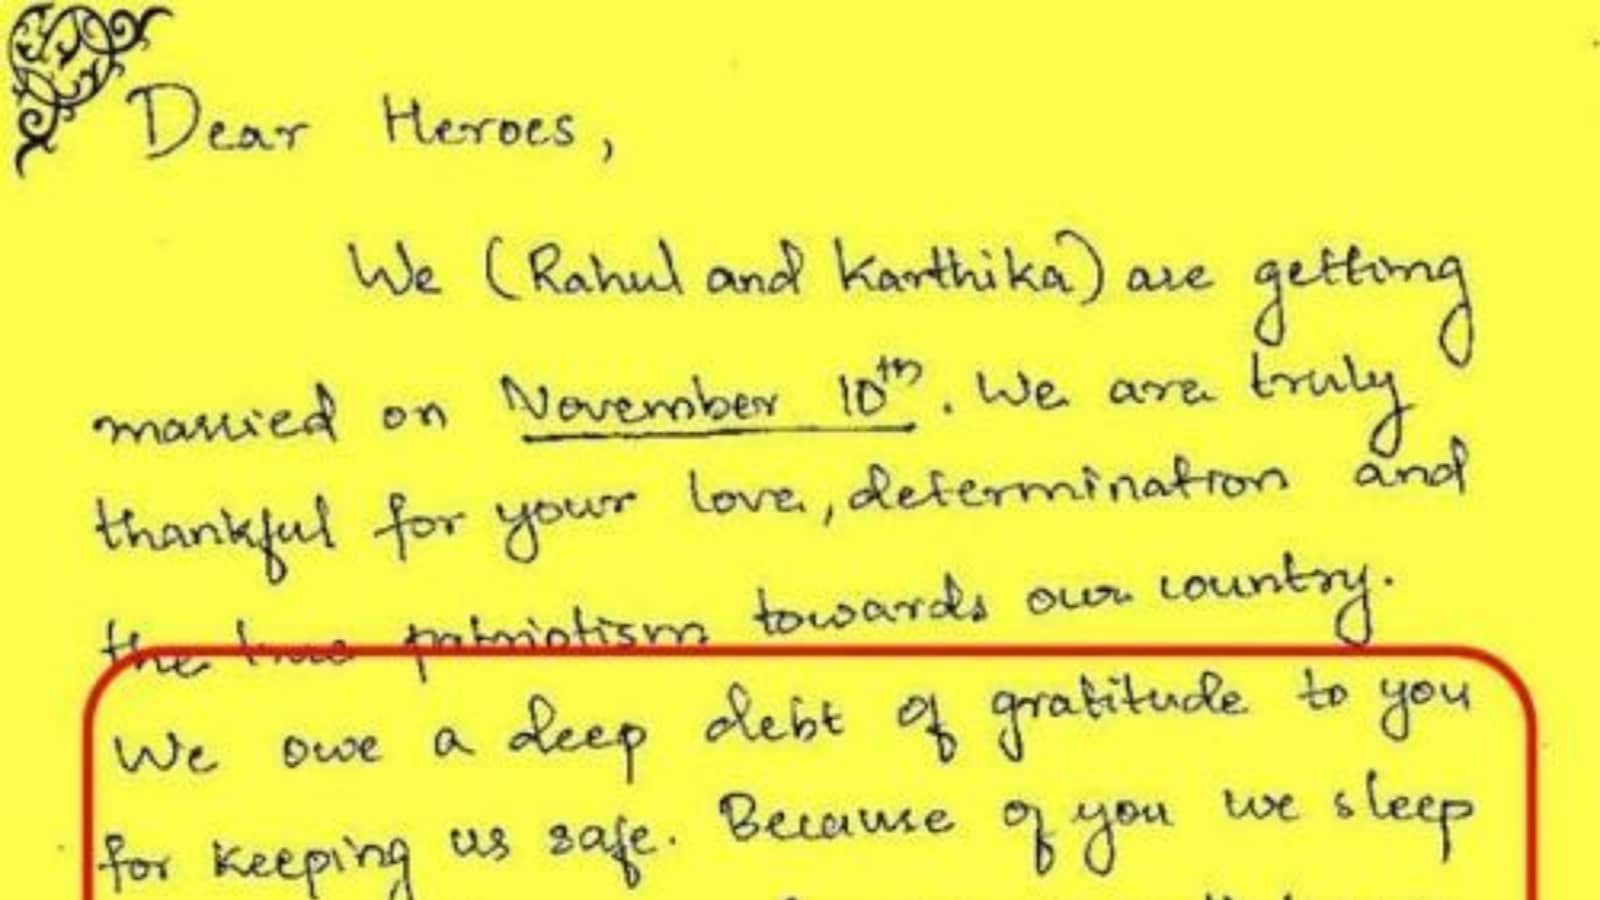 Dear Heroes,
We (Rahul and Karthika) are getting
married on November 10th. We are truly
thankful for your love, determination and
the true patriotism towards our country.
We owe a deep debt of gratitude to you
for keeping us safe. Because of you we sleep